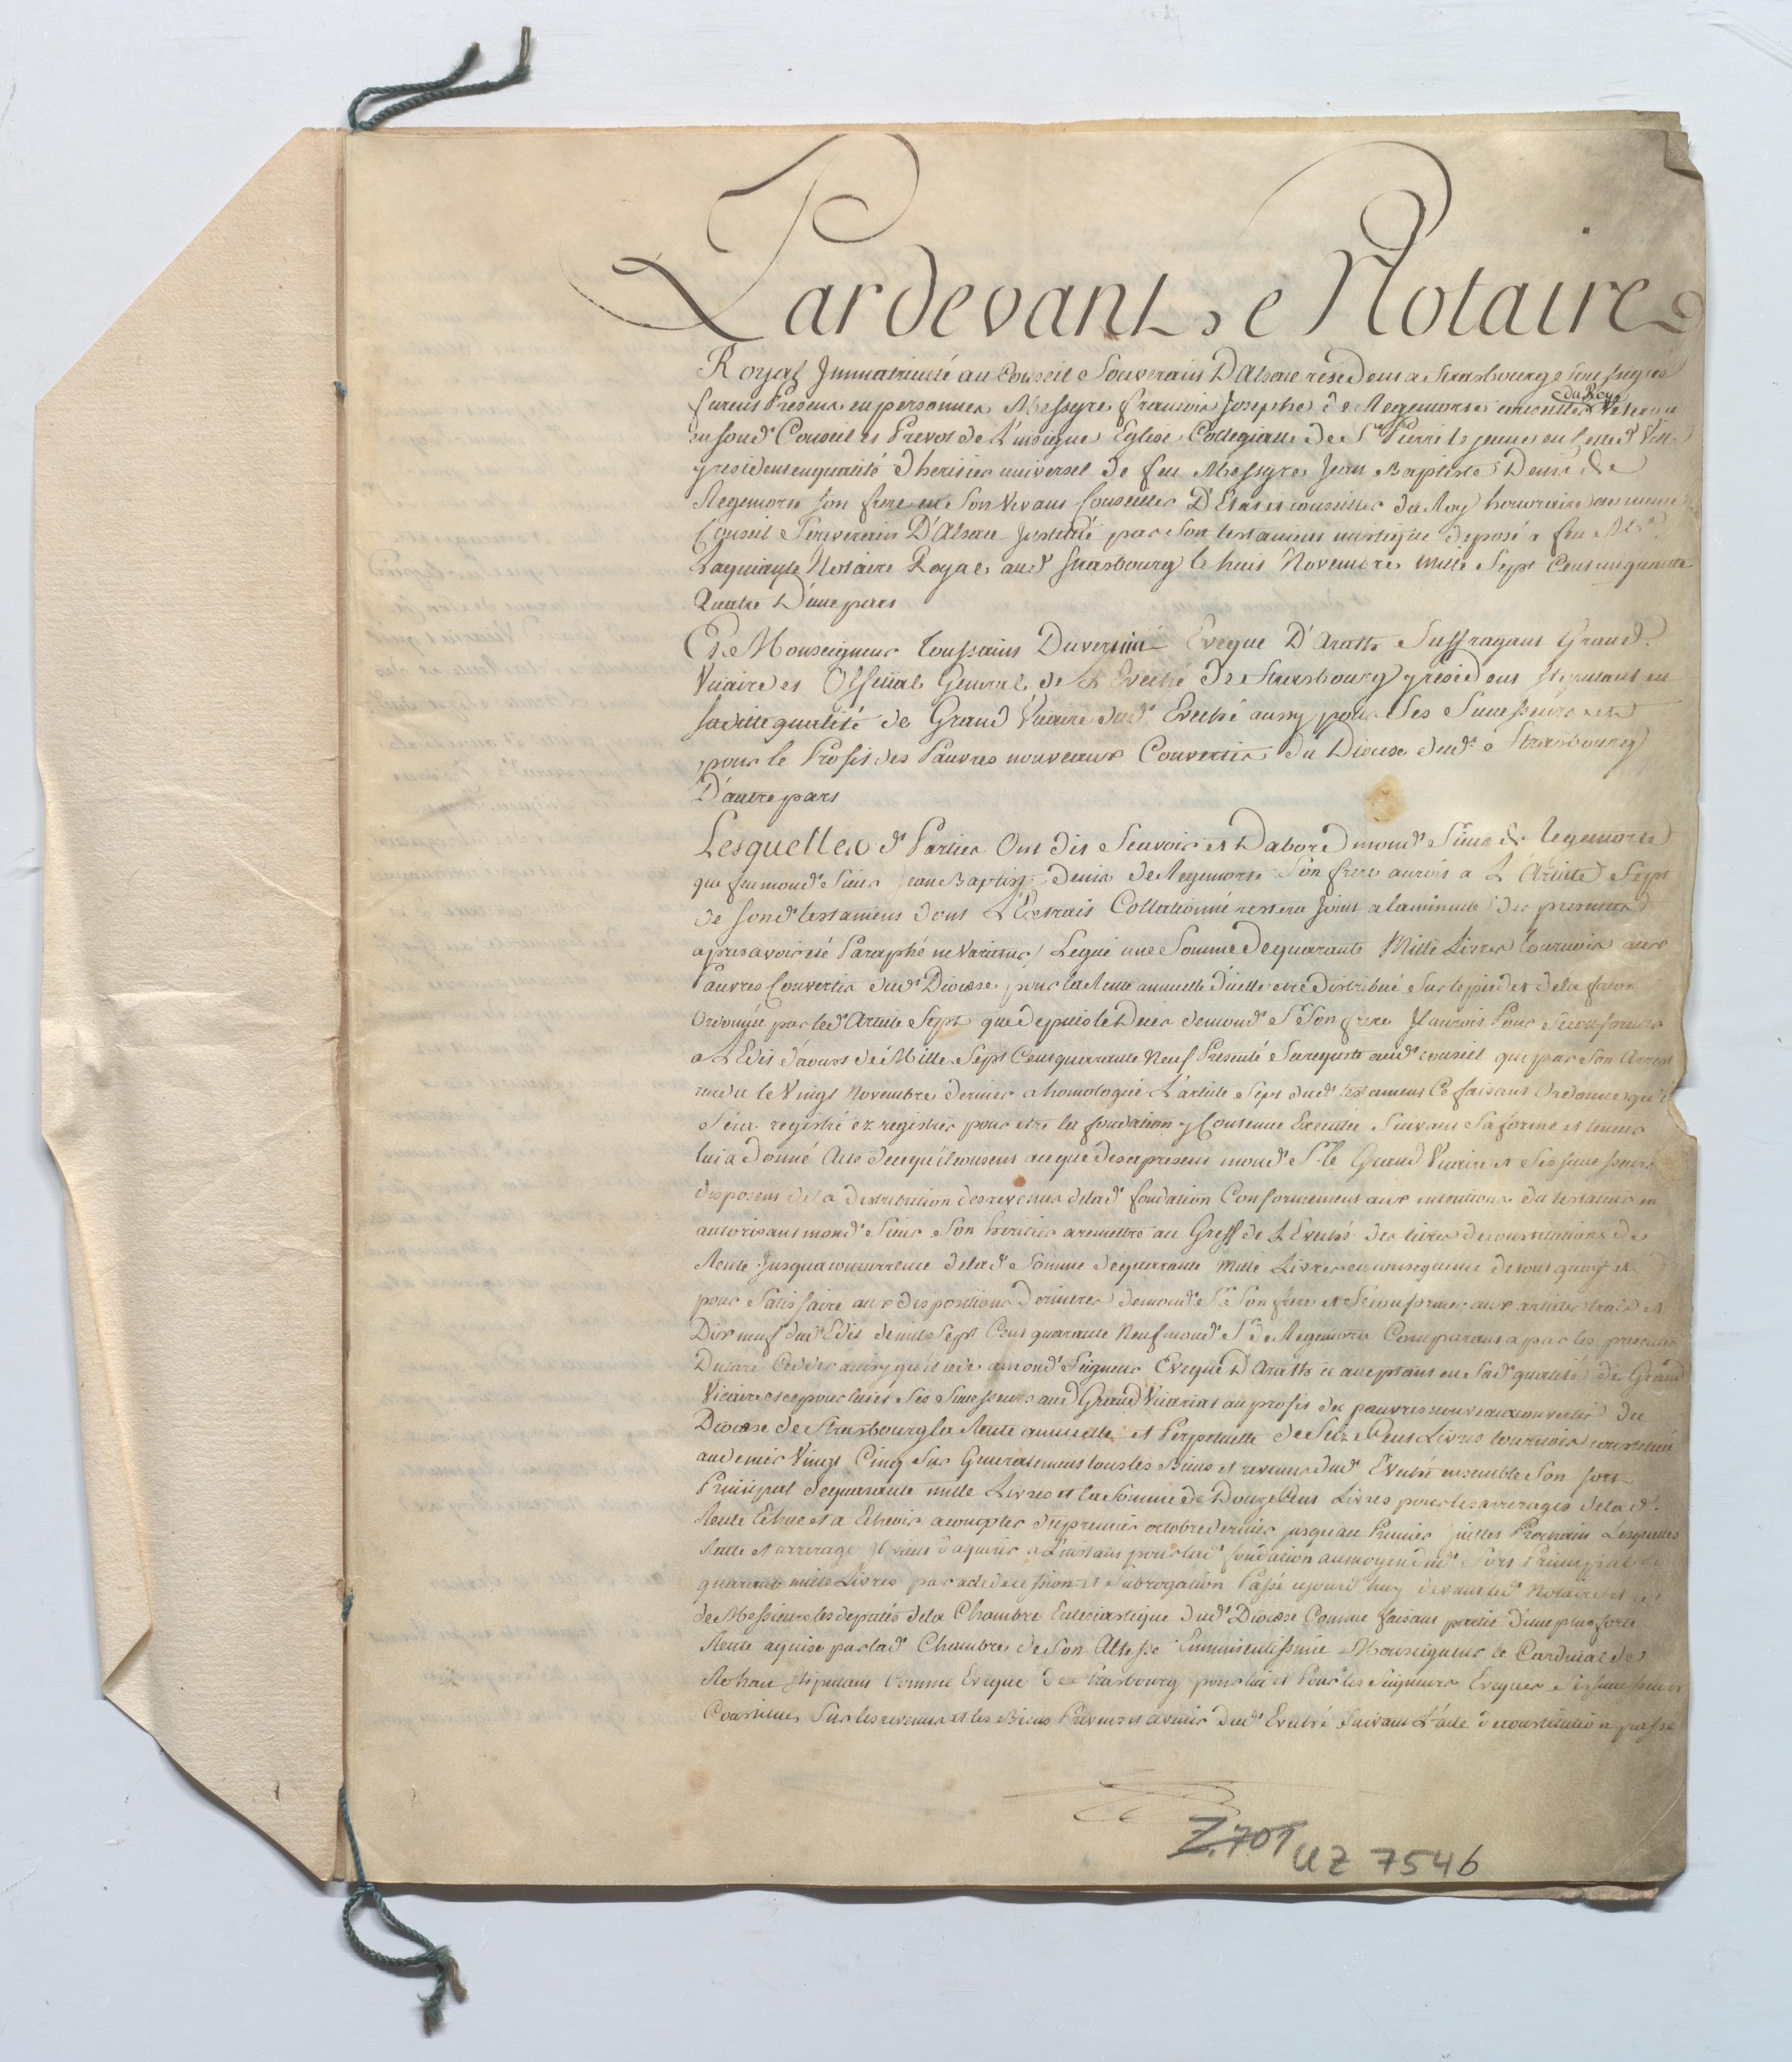 Pardevant Le Notaire
Royal Immatriculé au Conseil Souverain D'Alsace residant a Strasbourg Soussigné
furent Presens en personnes Messyre francois Josephe de Regemorte conseiller du Roy Veteran
dusoud. Conseil et Prevot de L'insigne Eglise Collegialle de St Pierre le jeune en cette d. Ville
y residant enqualité d'heritier universel de feu Messyre Jean Baptiste Denis de
Regemorte Son frere en Son Vivant Conseiller D'Etat et conseiller du Roy honoraire au meme
Conseil Souverain D'Alsace Institué par Son testament mistique deposé a feu Me
Laquiante Notaire Royal aud. Strasbourg le huit Novembre Mille Sept Cent cinquante
Quatre D'une part
Et Monseigneur Toussaint Duvernin Eveque D'Arath Suffragant Grand
Vicaire et Official General de L'Eveché de Strasbourg y residant stipulant en
saditte qualité de Grand Vicaire dud. Eveché aussy pour Ses Successeurs et
pour le Profit des Pauvres nouveaux Convertis du Diocese dud. Strasbourg
D'autre part
Lesquelles d. Parties Ont dit Scavoir et Dabord mond. Sieur de Regemorte
que feu mond. Sieur Jean Baptiste Denis de Regemorte Son frere auroit a L'Article Sept
de sond. testament dont L'Extrait Collationné restera Joint a la minute des presentes
apres avoir eté Paraphé ne Varietur, Legué une Somme de quarante Mille Livres tournois aux
Pauvres Convertis dud. Diocese pour la Rente annuelle d'icelle etre distribué Sur le pied et de la facon
Ordonnée par led. Article Sept, que depuis le Deces de mond. Sr Son frere Il auroit Pour Se conformer
a L'Edit d'aoust de Mille Sept Cent quarante Neuf Presenté Sa requete aud. conseil qui par Son Arrest
rendu le Vingt Novembre dernier a homologué L'article Sept dud. testament Ce faisant Ordonné qu'il
Sera registré ez registres pour etre la fondation y Contenue Executée Suivant Sa forme et teneur
lui a donné Acte de ce qu'il consent a ce que des a present mond. Sr le Grand Vicaire et Ses successeurs
disposent de la distribution des revenus de lad. fondation Conformement aux intentions du testateur en
autorisant mond. Sieur Son heritier a remettre au Greff de L'Eveché des titres de constitutions de
Rente Jusqua concurrence de lad. Somme de quarante Mille Livres en consequence de tout quoy et
pour Satisfaire aux dispositions dernieres de mond. Sr Son frere et Se conformer aux articles trois et
Dix neuf dud. Edit de mil Sept Cent quarante Neuf mond. Sr de Regemorte Comparant a par les presentes
Declaré Ceder ainsy qu'il cede a mond. Seigneur Eveque D'Arath ce acceptant en Sad. qualité de Grand
Vicaire et ce pour lui et Ses Successeurs aud. Grand Vicariat au profit des pauvres nouveaux convertis du
Diocese de Strasbourg la Rente annuelle et Perpetuelle de Seize Cent Livres tournois constitué
au denier Vingt Cinq Sur Generalement tous les Biens et revenus dud. Eveché ensemble Son fort
Principal de quarante mille Livres et la Somme de Douze Cent Livres pour les arrerages de lad.
Rente Echue et a Echeoir a compter du premier octobre dernier jusqu'au Premier juillet Prochain Lesquelles
Rente et arrerage Il vient d'aquerir a L'instant pour lad. fondation au moyen dud. Sort Principal de
quarante mille Livres par acte de cession et Subrogation Passé ce jourd'huy devant led. Notaire et
de Messieurs les deputés de la Chambre Eclesiastique dud. Diocese Comme faisant partie d'une plus forte
Rente aquise par lad. Chambre de Son Altesse Eminentissime Monseigneur le Cardinal de
Rohan stipulant Comme Eveque de Strasbourg pour lui et Pour les Seigneurs Eveques Ses successeurs
Constitué Sur les revenus et les Biens Presens et avenir dud. Eveché Suivant L'acte de constitution passé
Z. 701 UZ 7546